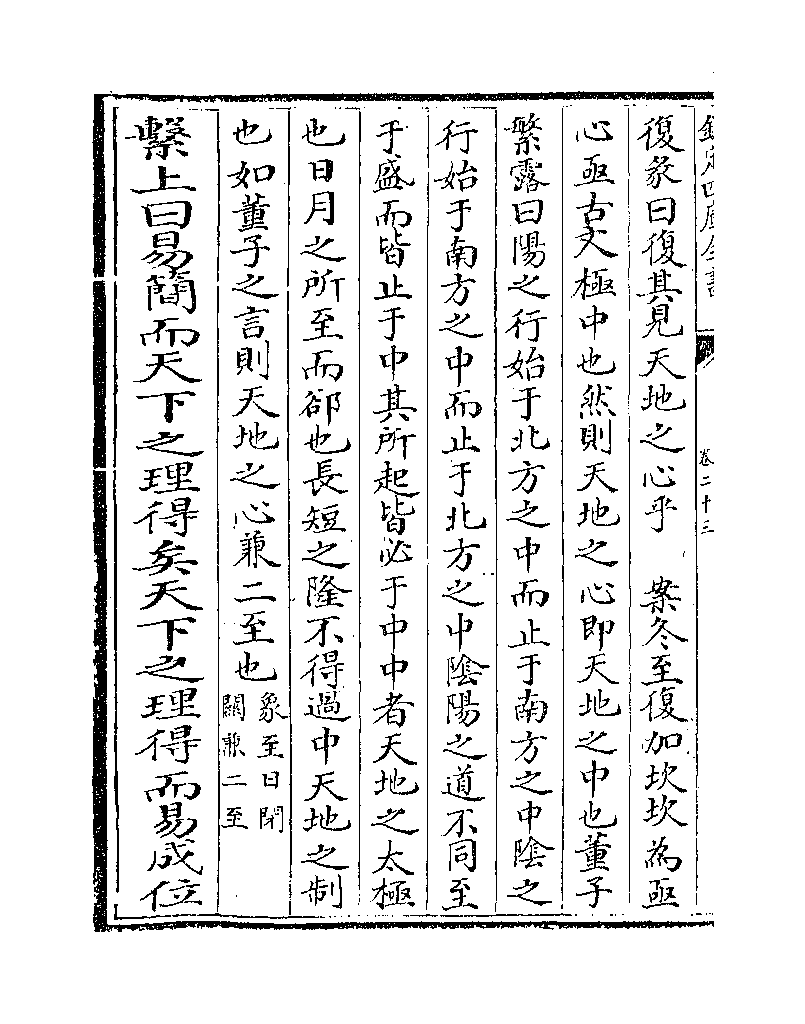 欽定四庫全書
卷二十三
復彖曰復其見天地之心乎　案冬至復加坎坎為亟
心亟古文極中也然則天地之心即天地之中也董子
繁露曰陽之行始于北方之中而止于南方之中陰之
行始于南方之中而止于北方之中陰陽之道不同至
于盛而皆止于中其所起皆必于中中者天地之太極
也日月之所至而卻也長短之隆不得過中天地之制
也如董子之言則天地之心兼二至也
象至日閉
關兼二至
繫上曰易簡而天下之理得矣天下之理得而易成位